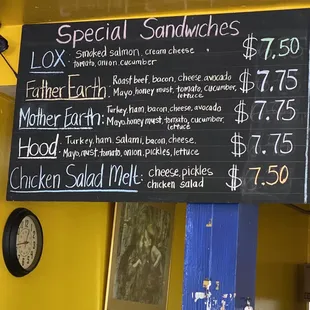 Special Sandwiches
LOX: Smoked salmon, cream cheese $7.50
tomato, onion, cucumber
Father Earth: Roast beef, bacon, cheese, avocado $7.75
Mayo, honey must, tomato, cucumber, lettuce
Mother Earth: Turkey, ham, bacon, cheese, avocado $7.75
Mayo, honey must, tomato, cucumber, lettuce
Hood: Turkey, ham, Salami, bacon, cheese, $7.75
Mayo, must, tomato, onion, pickles, lettuce
Chicken Salad Melt: cheese, pickles $7.50
chicken salad
Sandwiches